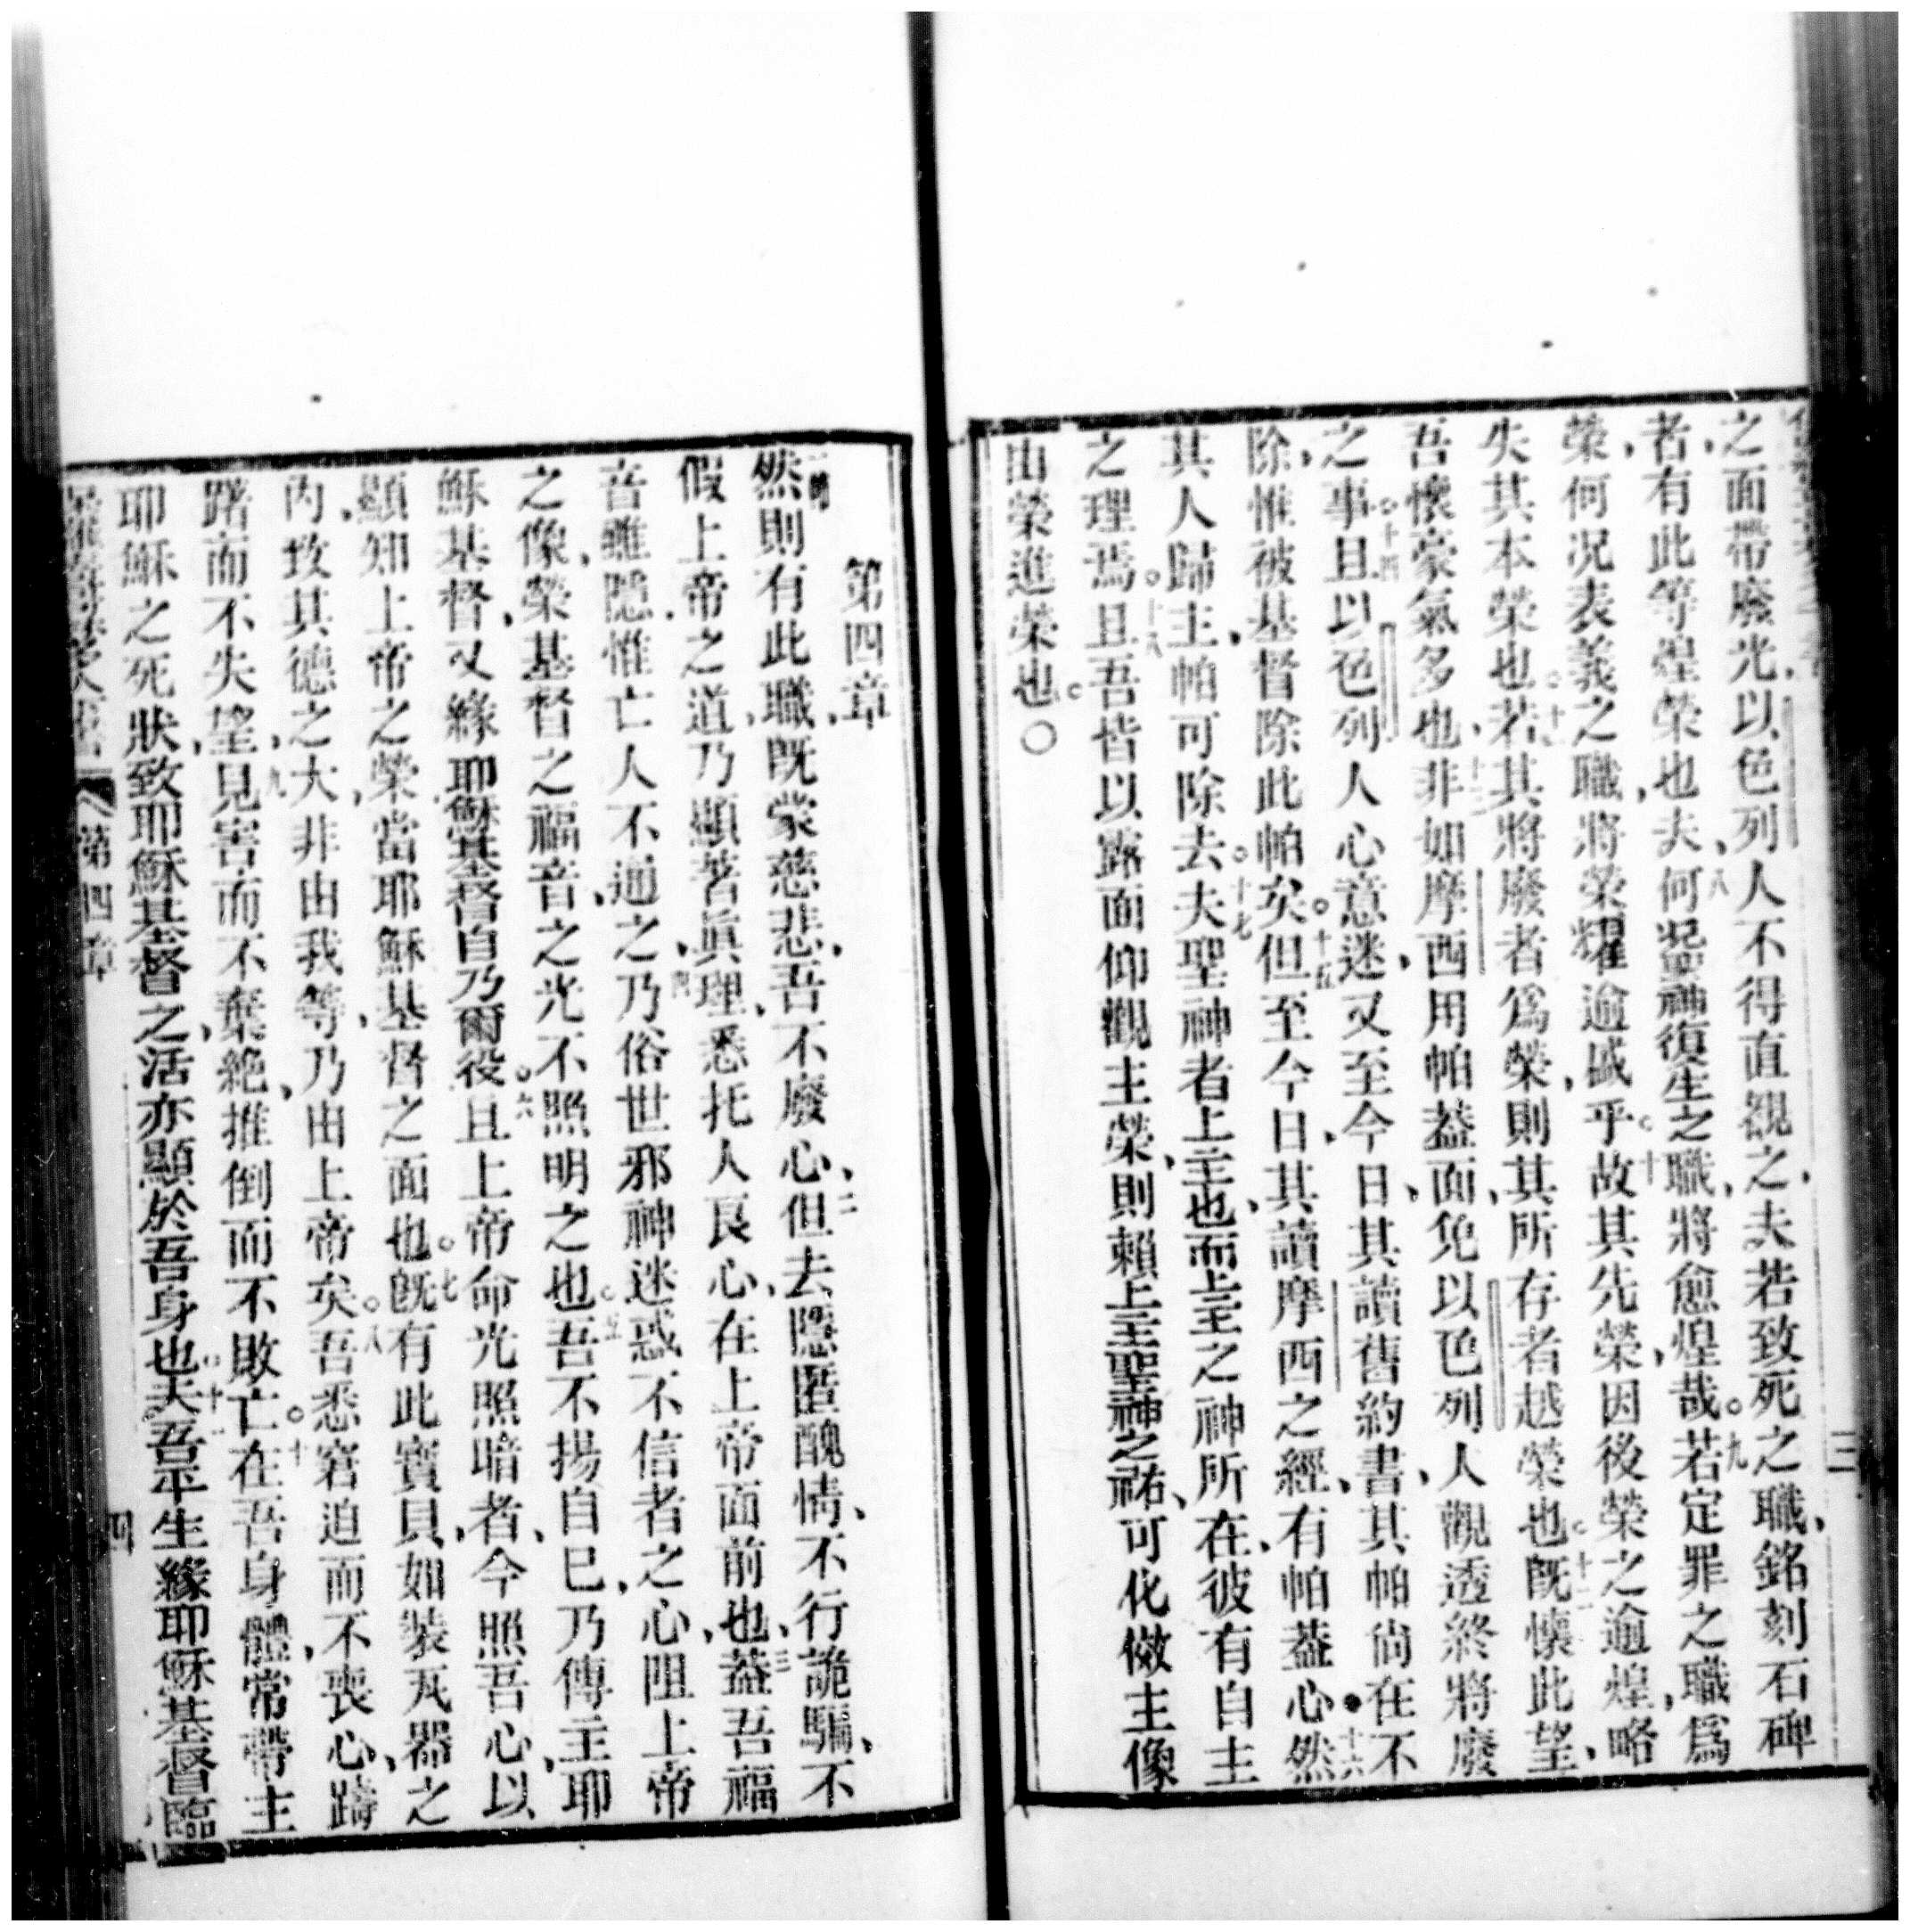 之面帶廢光以色列人不得直覩之夫若致死之職銘刻石碑
者有此等煌榮也八夫何况聖神復生之職將愈煌哉九若定罪之職爲
榮何况表義之職將榮耀逾盛乎十故其先榮因後榮之逾煌略
失其本榮也十一若其將廢者爲榮則其所存者越榮也十二既懷此望
吾懷豪氣多也十三非如摩西用帕葢面免以色列人觀透終將廢
之事十四且以色列人心意迷又至今日其讀舊約書其帕尙在不
除惟被基督除此帕矣十五但至今日其讀摩西之經有帕葢心十六然
其人歸主帕可除去十七夫聖神者上主也而上主之神所在彼有自主
之理焉十八且吾皆以露面仰觀主榮則賴上主聖神之祐可化倣主像
由榮進榮也〇
三
第四章
一節
然則有此職既蒙慈悲吾不廢心二但去隱匿醜情不行詭騙不
假上帝之道乃顯著眞理悉托人良心在上帝面前也三葢吾福
音雖隱惟亡人不通之四乃俗世邪神迷惑不信者之心阻上帝
之像榮基督之福音之光不照明之也五吾不揚自己乃傳主耶
穌基督又緣耶穌基督自乃爾役六且上帝命光照暗者今照吾心以
顯知上帝之榮當耶穌基督之面也七既有此寶貝如裝瓦器之
內致其德之大非由我等乃由上帝矣八吾悉窘迫而不喪心躊
躇而不失望九見害而不棄絶推倒而不敗亡十在吾身體常帶主
耶穌之死狀致耶穌基督之活亦顯於吾身也十一夫吾平生緣耶穌基督臨
第四章
四